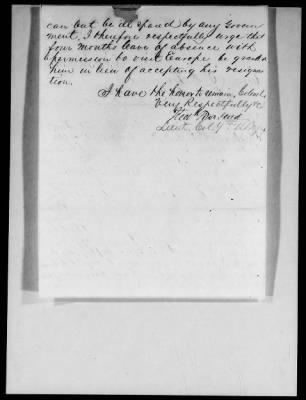 can but be ill spared by any Govern
ment, I therefore respectfully urge that
four months leave of absence with
permission to visit Europe be granted
him in lieu of accepting his resigna
tion.
I have the honor to remain, Colonel,
Very Respectfully &c
Lieut. Col 4th